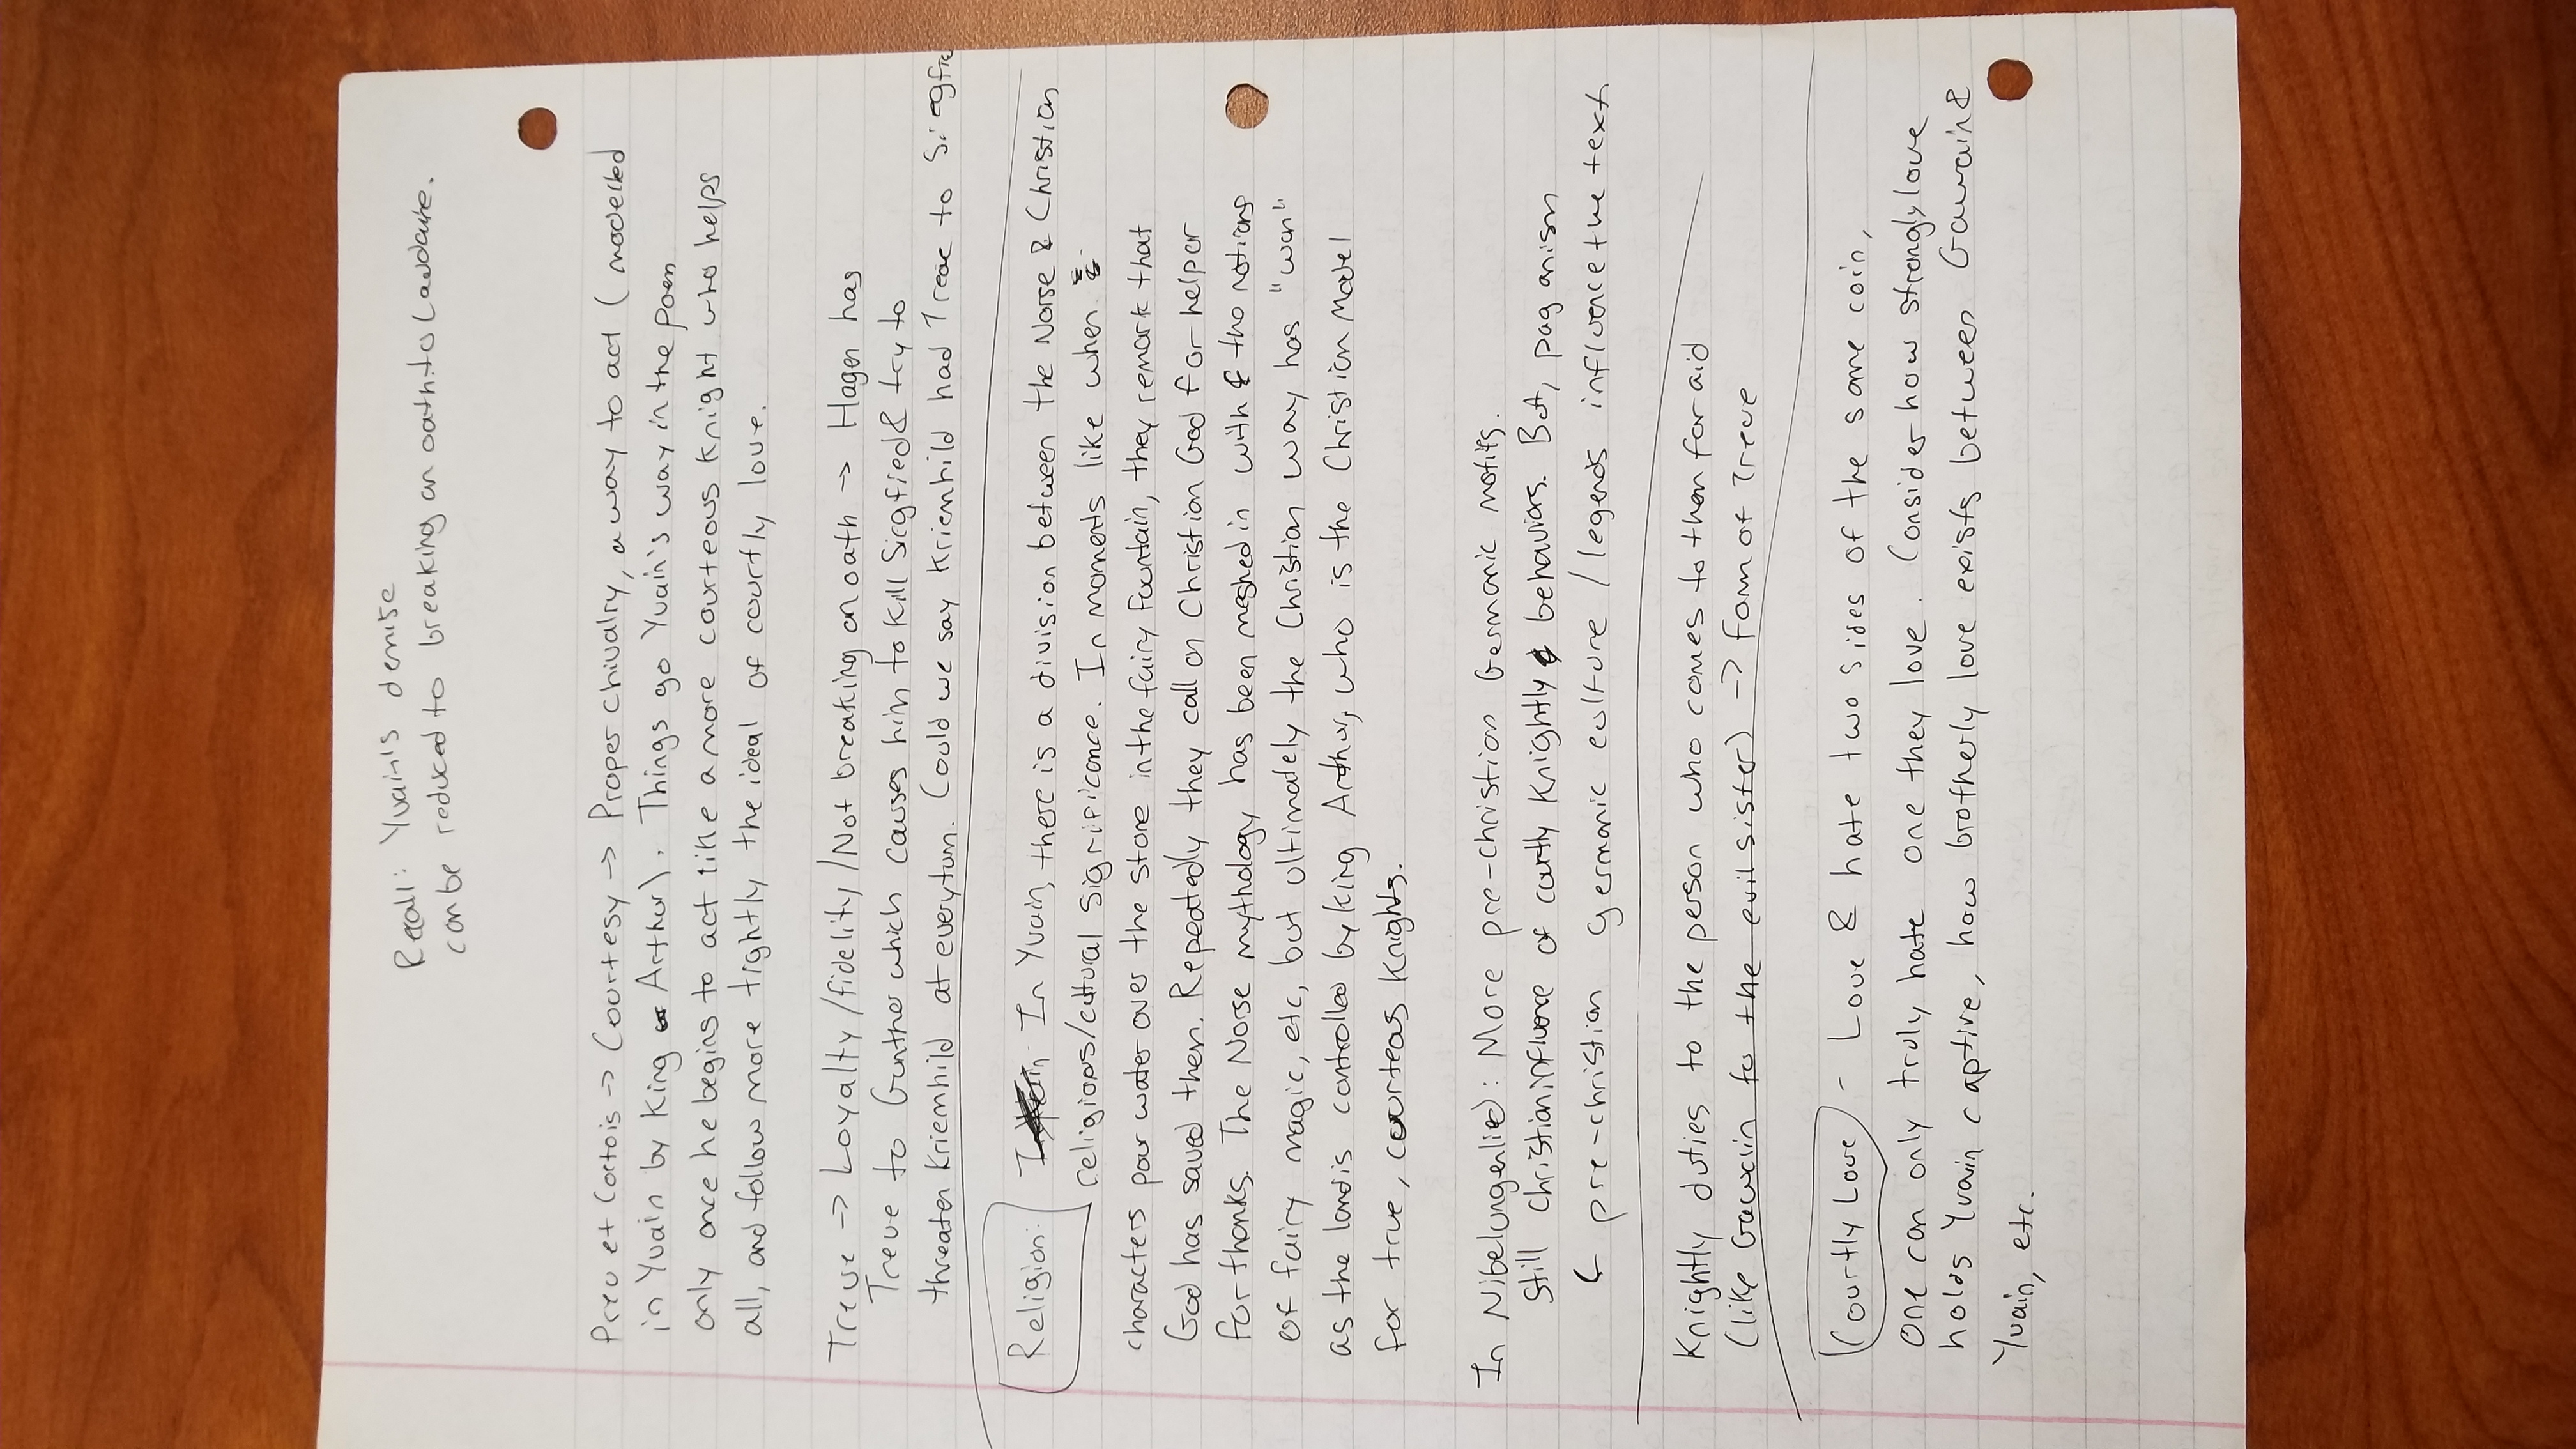 Recall: Yvain's demise
can be reduced to breaking an oath to Laudaire.
Preu et Cortois -> Courtesy -> Proper chivalry, a way to act (modelled
in Yvain by King Arthur). Things go Yvain's way in the poem
only once he begins to act like a more courteous knight who helps
all, and follow more tightly the ideal of courtly love.
Treue -> Loyalty/fidelity/Not breaking an oath -> Hagen has
Treue to Gunther which causes him to kill Siegfried & try to
threaten Kriemhild at every turn. Could we say Kriemhild had Treue to Siegfrie
Religion: In Yvain, there is a division between the Norse & Christian
religious/cultural significance. In moments like when
characters pour water over the stone in the fairy fountain, they remark that
God has saved them. Repeatedly they call on Christian God for help or
for thanks. The Norse mythology has been meshed in with the notions
of fairy magic, etc, but ultimately the Christian way has "won"
as the land is controlled by King Arthur, who is the Christian Model
for true, courteous Knights.
In Nibelungenlied: More pre-christian Germanic motifs.
Still Christian influence of courtly knightly behaviors. But, paganism
& pre-christian germanic culture/legends influence the text
Knightly duties to the person who comes to them for aid
(like Gawain to the evil sister) -> Form of Treue
Courtly Love - Love & hate two sides of the same coin,
one can only truly hate one they love. Consider how strongly love
holds Yvain captive, how brotherly love exists between Gawain &
Yvain, etc.